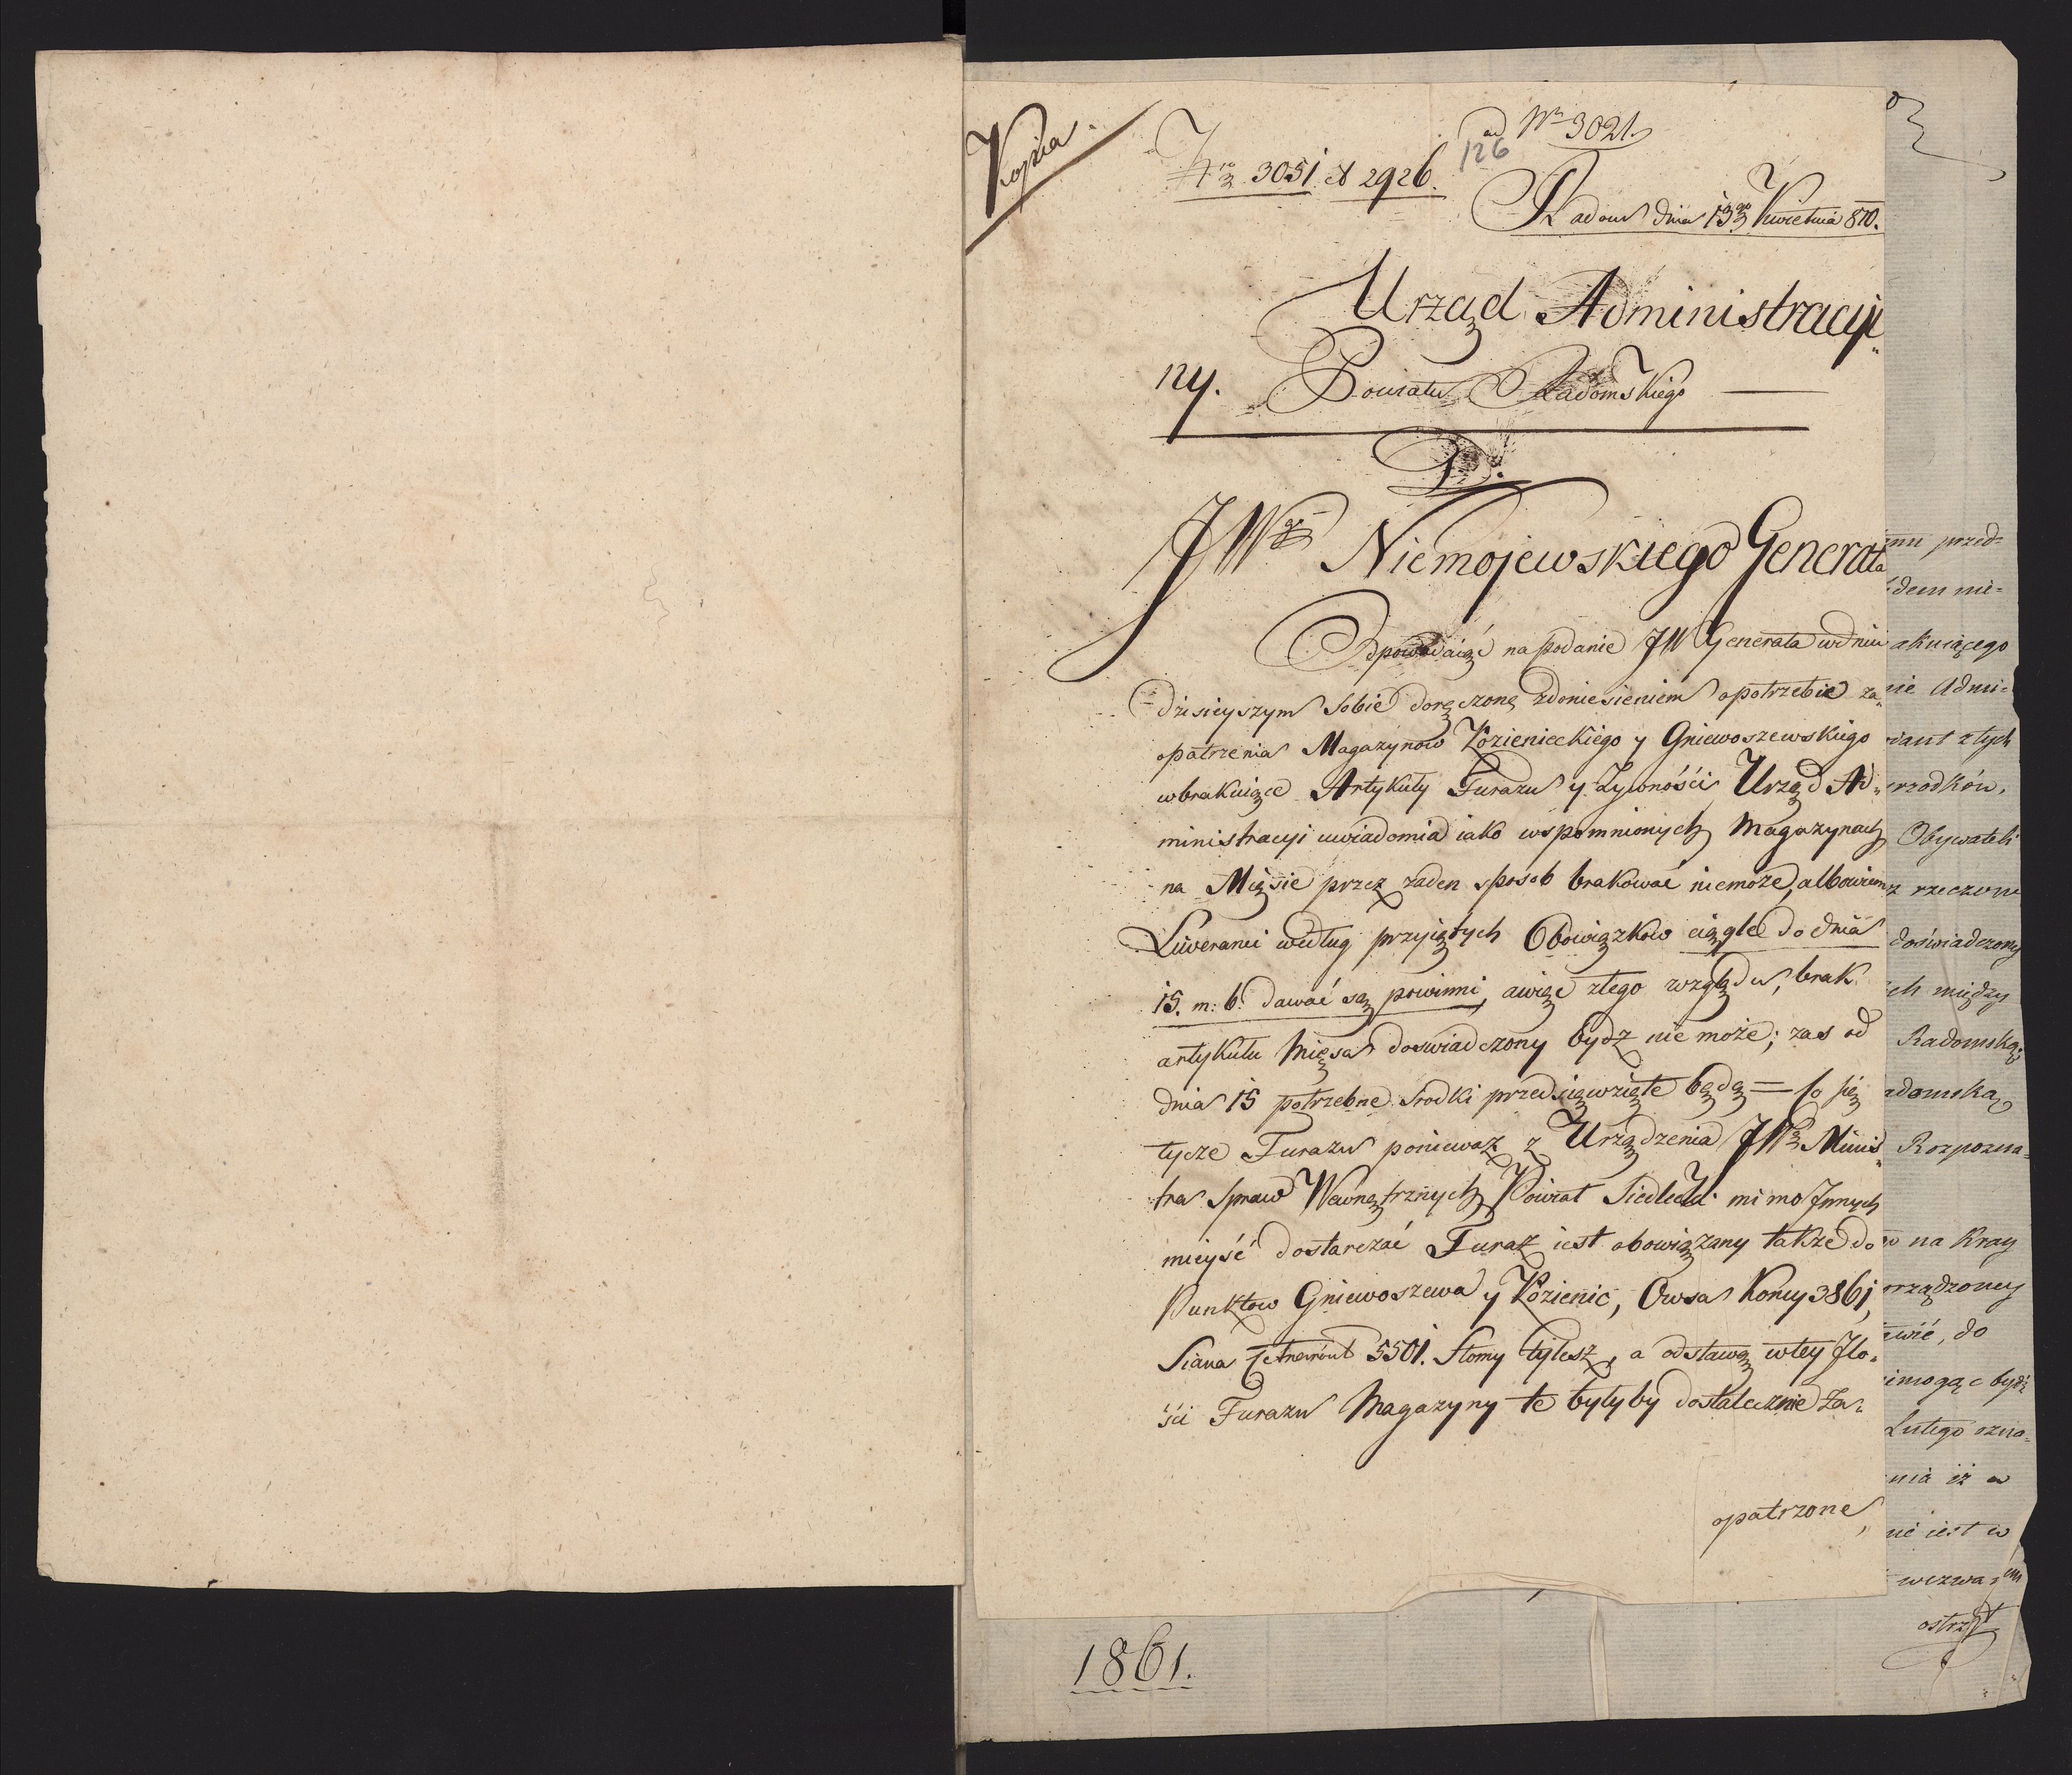 Kopia.
ad Nro 3021.
126
Nro 3051 et 2926.
Radom dnia 13go Kwietnia 810.
Urząd Administracyi„
ny. Powiatu Radomskiego
D.
JWgo Niemojewskiego Generała
Odpowiadaiąc na podanie JW Generała w dniu
dzisieyszym sobie doręczone z doniesieniem o potrzebie za„
opatrzenia Magazynow Kozienieckiego y Gniewoszewskiego
w brakuiące Artykuły Furazu y Zywności Urząd Ad„
ministracyi uwiadomia iako wspomnionych Magazynach
na Mięsie przez zaden sposob brakować niemoze, albowiem
Liweranci według przyiętych Obowiązkow ciągle do dnia
15. m: b. dawać są powinni, a więc z tego względu, brak
artykułu Mięsa doswiadczony bydz nie może; zas od
dnia 15 potrzebne srodki przedsięwzięte będą = Co się
tycze Furazu poniewaz z Urządzenia JWgo Minis„
tra Spraw Wewnętrznych Powiat Siedlecki mimo Jnnych
mieyść dostarczać Furaz iest obowiązany także do
Punktow Gniewoszewa y Kozienic, Owsa Korcy 3861,
Siana Cetnarów 5501. Słomy tylesz, a odstawą w tey Jlo„
ści Furazu Magazyny te byłyby dostatecznie Za„
opatrzone,
1861.
przed=
dem nie=
akuiącego
nie Admi=
z tych
rzodków,
Obywateli
z rzeczone
doświadczony
ch między
Radomską
adomską
Rozpozna=
na Kray
rządzoney
do
imogąc bydź
Lutego ozna=
nia iż w
nie iest w
wezwa